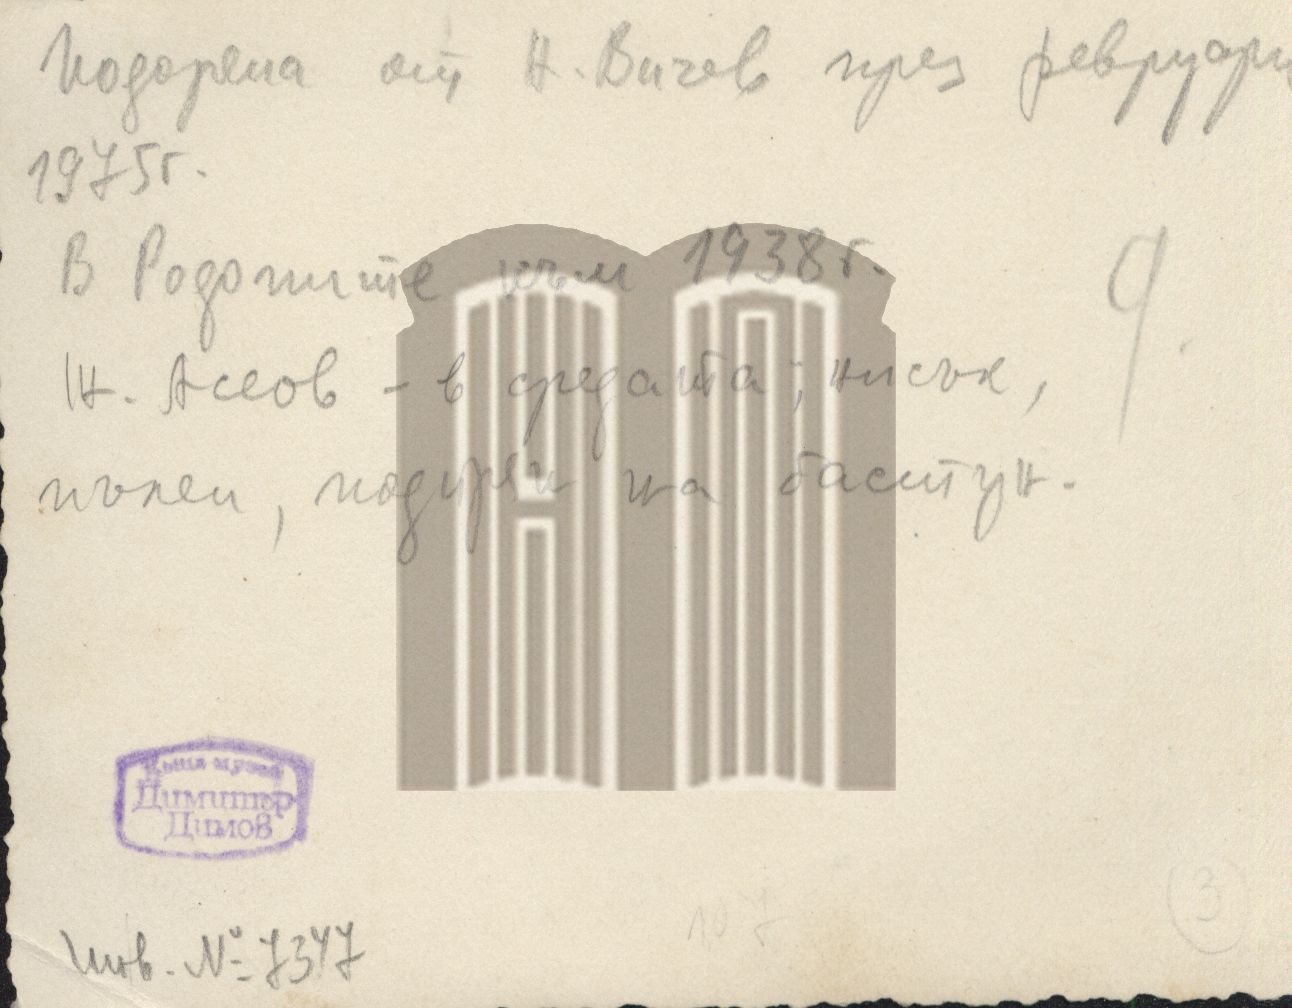 Подарена от Н. Вичев през февруари
1975г.
В Родопите към 1938г.
Н. Асеов - в средата; нисък,
пълен, подпрян на бастун.
9.
Къща-музей
Димитър
Димов
Инв. № 7347
107
3